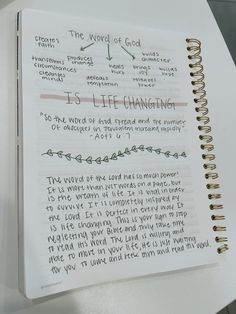 The Word of God
creates faith
produces change
builds character
transforms circumstances
heals hurts
brings joy
builds
cleanses minds
defeats temptation
releases
IS LIFE CHANGING
"So the word of God spread and the number
of disciples in Jerusalem increased rapidly"
- Acts 6:7
The word of the Lord has so much power!
It is more than just words on a page, but
is the breath of life. It is vital in order
to survive. It is completely inspired by
the Lord. It is perfect in every way. It
is life changing. This is your sign to stop
neglecting your Bible and truly take time
to read His word. The Lord is willing and
able to move in your life, He is just waiting
for you to come and seek him and read his word.